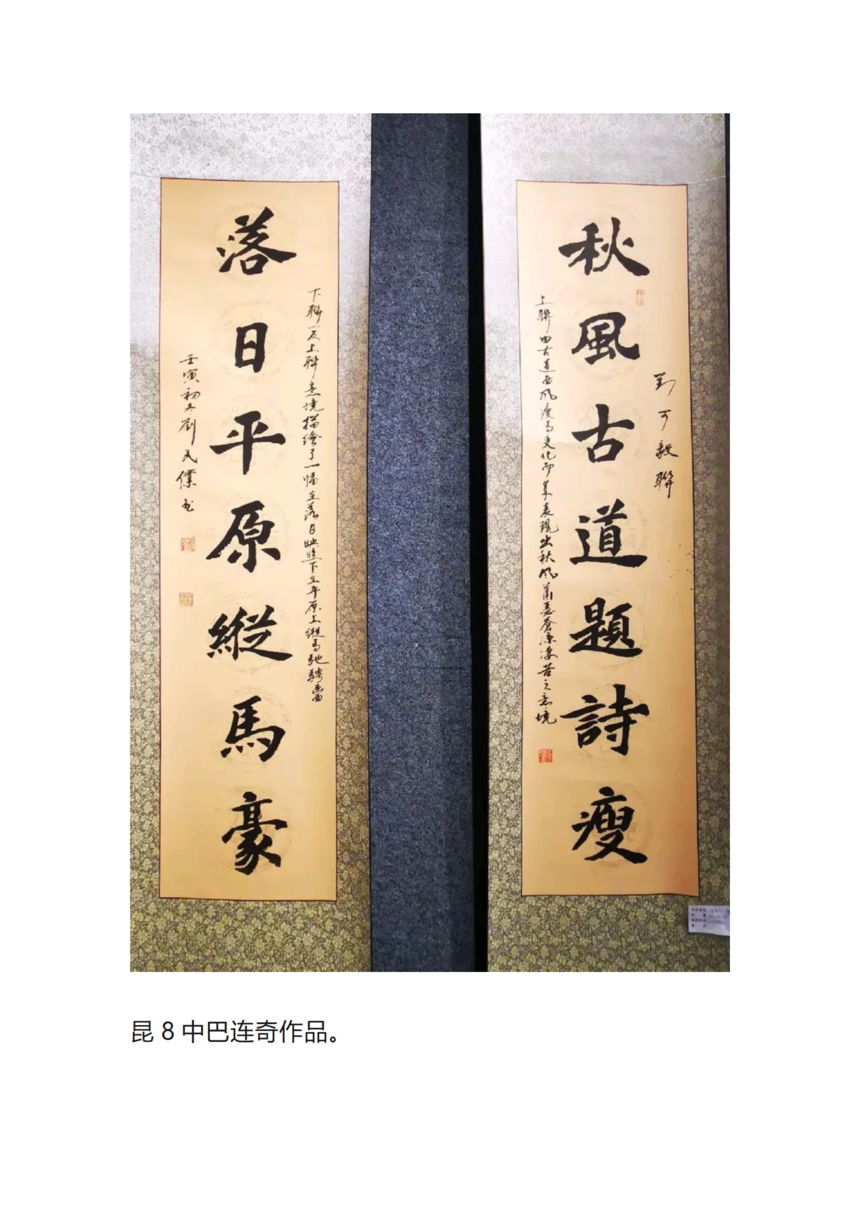 劉可毅聯
秋風古道題詩瘦
上聯由古道西風瘦馬變化而來表現出秋風蕭瑟蒼涼淒苦之意境
下聯一反上聯意境描繪了一幅在落日映照下在平原上縱馬馳騁畫面
落日平原縱馬豪
壬寅初冬劉民僕書
昆 8 中巴连奇作品。